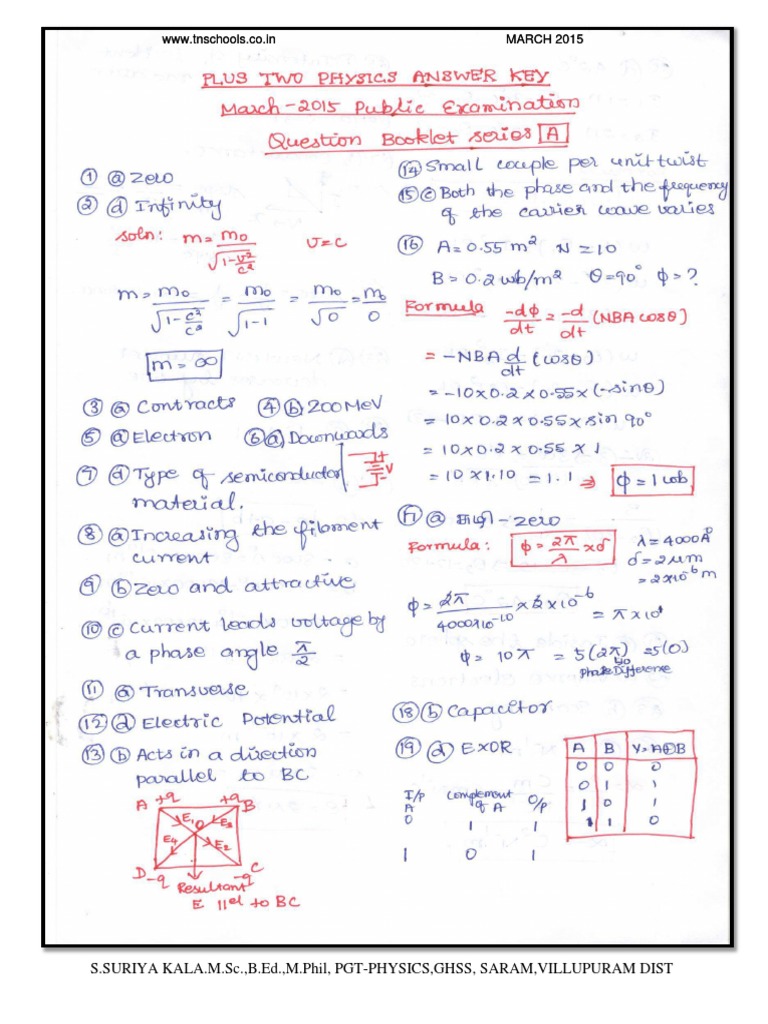 www.tnschools.co.in MARCH 2015
PLUS TWO PHYSICS ANSWER KEY
March-2015 Public Examination
Question Booklet series A
① ⓐ Zero
② ⓓ Infinity
soln: m = m₀/√(1-v²/c²) v=c
m = m₀/√(1-c²/c²) = m₀/√(1-1) = m₀/√0 = m₀/0
m = ∞
③ ⓐ Contracts ④ ⓑ 200 MeV
⑤ ⓐ Electron ⑥ ⓐ Downwoods
⑦ ⓓ Type of semiconductor
material.
+
- V
⑧ ⓐ Increasing the filament
current
⑨ ⓑ Zero and attractive
⑩ ⓒ Current leads voltage by
a phase angle π/2
⑪ ⓐ Transverse
⑫ ⓓ Electric Potential
⑬ ⓑ Acts in a direction
parallel to BC
A +q +q B
E₁ O E₃
E₄ E₂
D -q -q C
Resultant
E llel to BC
⑭ Small couple per unit twist
⑮ ⓒ Both the phase and the frequency
of the carrier wave varies
⑯ A = 0.55 m² N = 10
B = 0.2 wb/m² θ = 90° ϕ = ?
Formula -dϕ/dt = -d/dt (NBA cosθ)
= -NBA d/dt (cosθ)
= -10 × 0.2 × 0.55 × (-sinθ)
= 10 × 0.2 × 0.55 × sin 90°
= 10 × 0.2 × 0.55 × 1
= 10 × 1.10 = 1.1 ⇒ ϕ = 1 wb
⑰ ⓐ சுழி - zero
Formula: ϕ = 2π/λ × δ
λ = 4000 A°
δ = 2 μm
= 2×10⁻⁶ m
ϕ = 2π/4000×10⁻¹⁰ × 2 × 10⁻⁶ = π × 10¹
ϕ = 10π = 5(2π) = 5(0)
Phase Difference
⑱ ⓑ Capacitor
⑲ ⓓ EXOR
I/p A complement of A O/p
0 1 1
1 0 1
A B Y=A⊕B
0 0 0
0 1 1
1 0 1
1 1 0
S.SURIYA KALA.M.Sc.,B.Ed.,M.Phil, PGT-PHYSICS,GHSS, SARAM,VILLUPURAM DIST